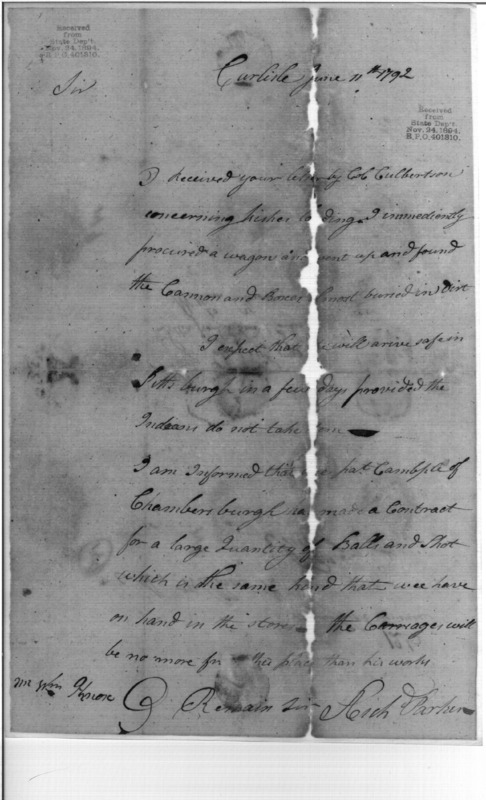 Received
from
State Dep't.
Nov. 24, 1894.
R.P.O. 401810.
Carlisle June 11th 1792
Sir
Received
from
State Dep't.
Nov. 24, 1894.
R.P.O. 401810.
I Received your letter by Col Culbertson
concerning his I immediently
procured a wagon and went up and found
the Cannon and Boxes almost buried in Dirt
I expect that will arive safe in
Pittsburgh in a few days provided the
Indians do not take
I am Informed that Pat Cambple of
Chambersburgh has made a Contract
for a large Quantity of Balls and Shot
which is the same kind that wee have
on hand in the stores the Carriages will
be no more for this place than his works
Mr Wm Knox
I Remain Sir